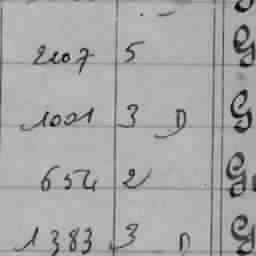 2207 5 G
1001 3 D G
654 2 G
1383 3 D G